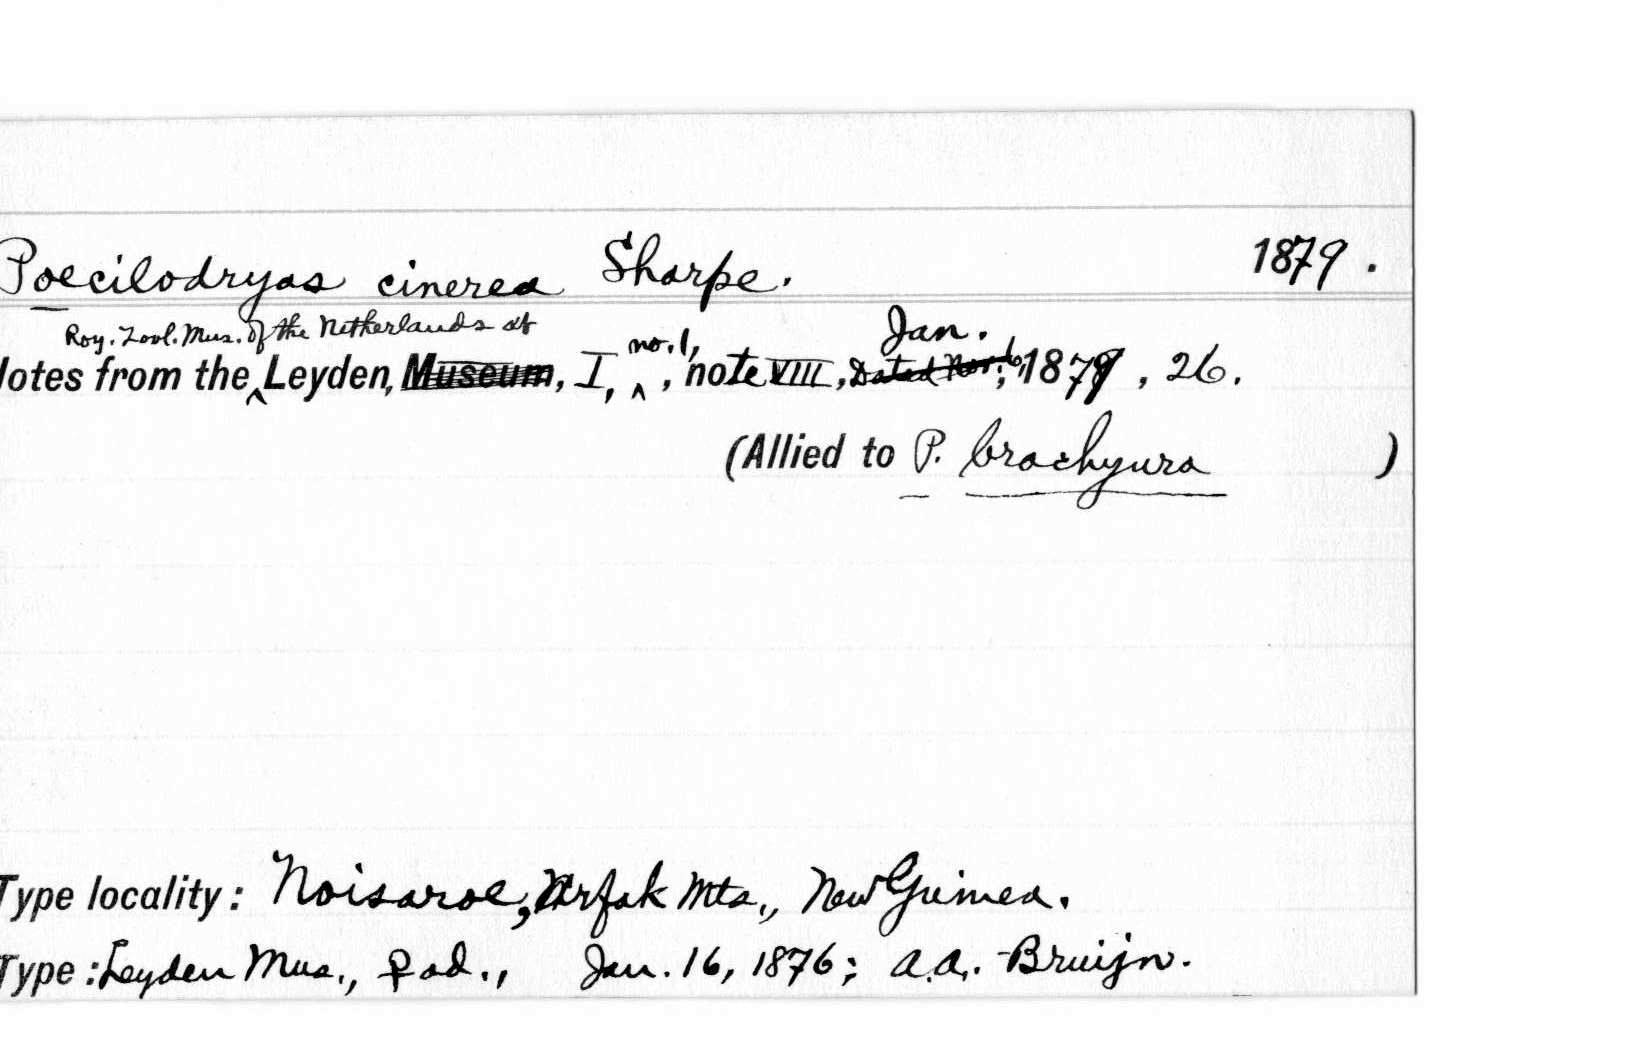 Poecilodryas cinerea Sharpe. 1879.
Roy. Zool. Mus. of the Netherlands at
Notes from the ^ Leyden, Museum, I, ^ no. 1, , note VIII, Dated Nov. 6, ; Jan. 1879, 26.
(Allied to P. brachyura )
Type locality: Noisaroe, Arfak Mts., New Guinea.
Type: Leyden Mus., ♀ ad., Jan. 16, 1876; A.A. Bruijn.